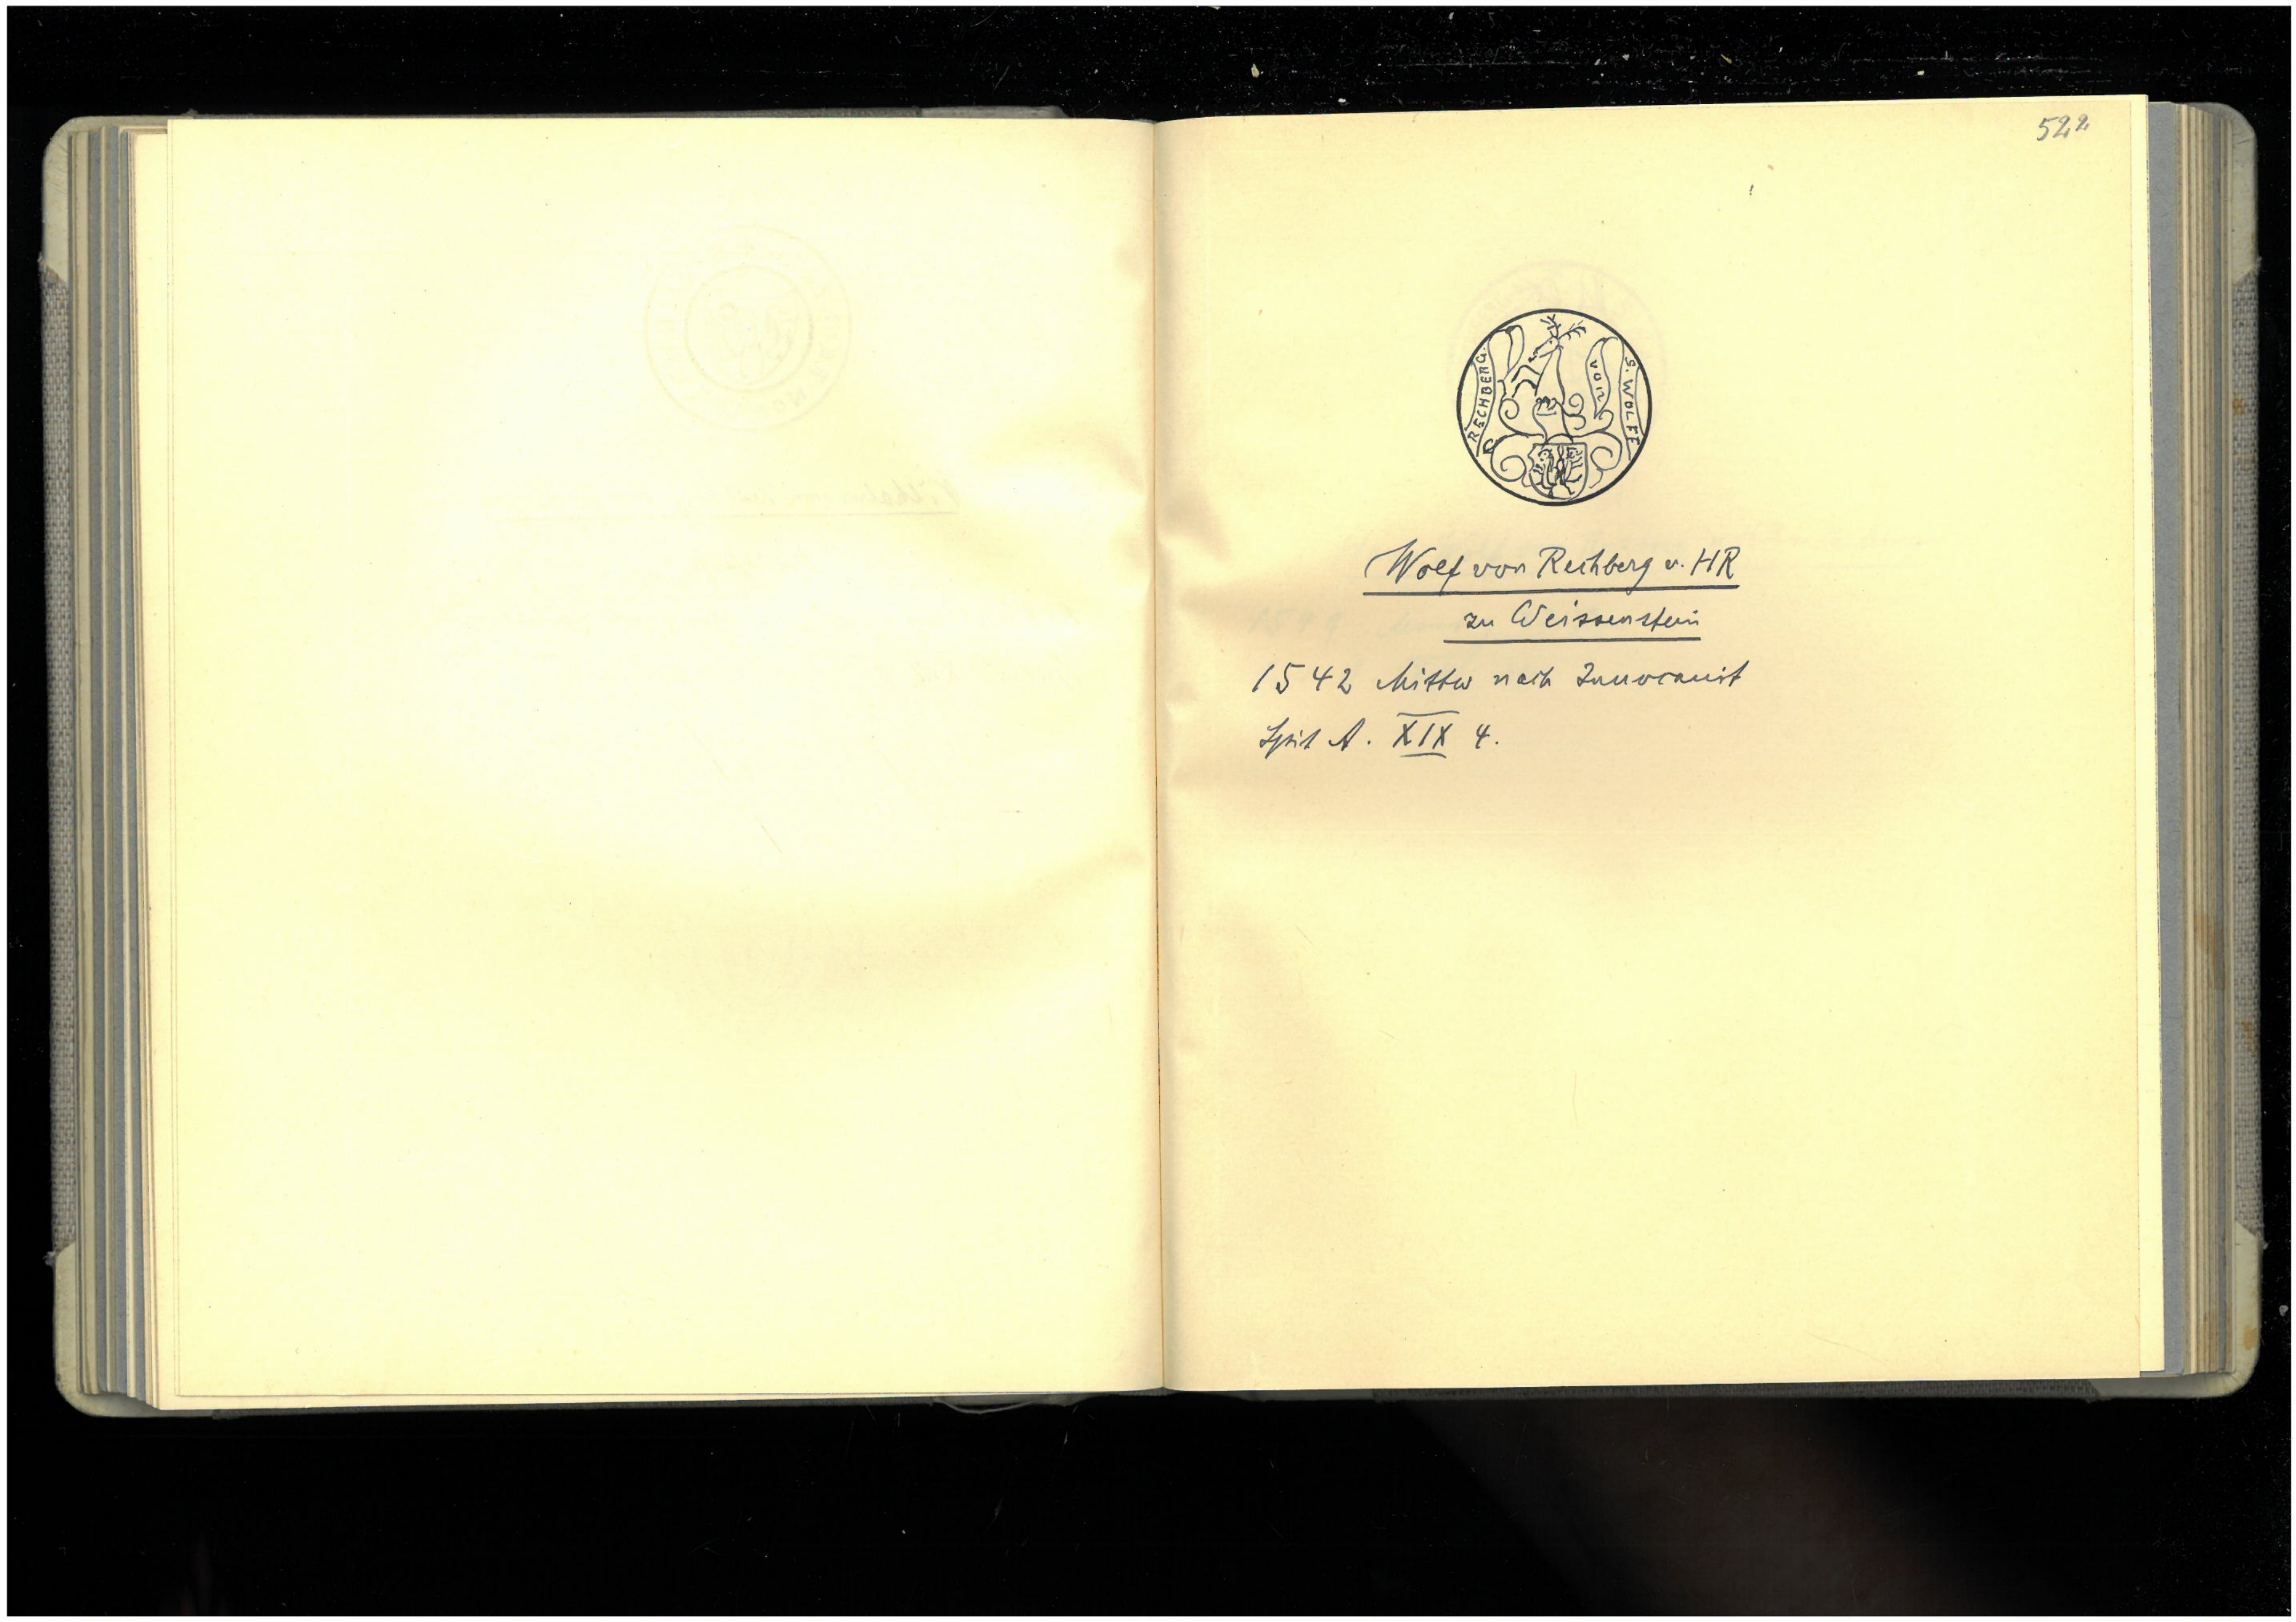 522
S. WOLFF
VON
RECHBERG.
Wolf von Rechberg v. HR
zu Weissenstein
1542 Mittw nach Invocavit
Spit A. XIX 4.